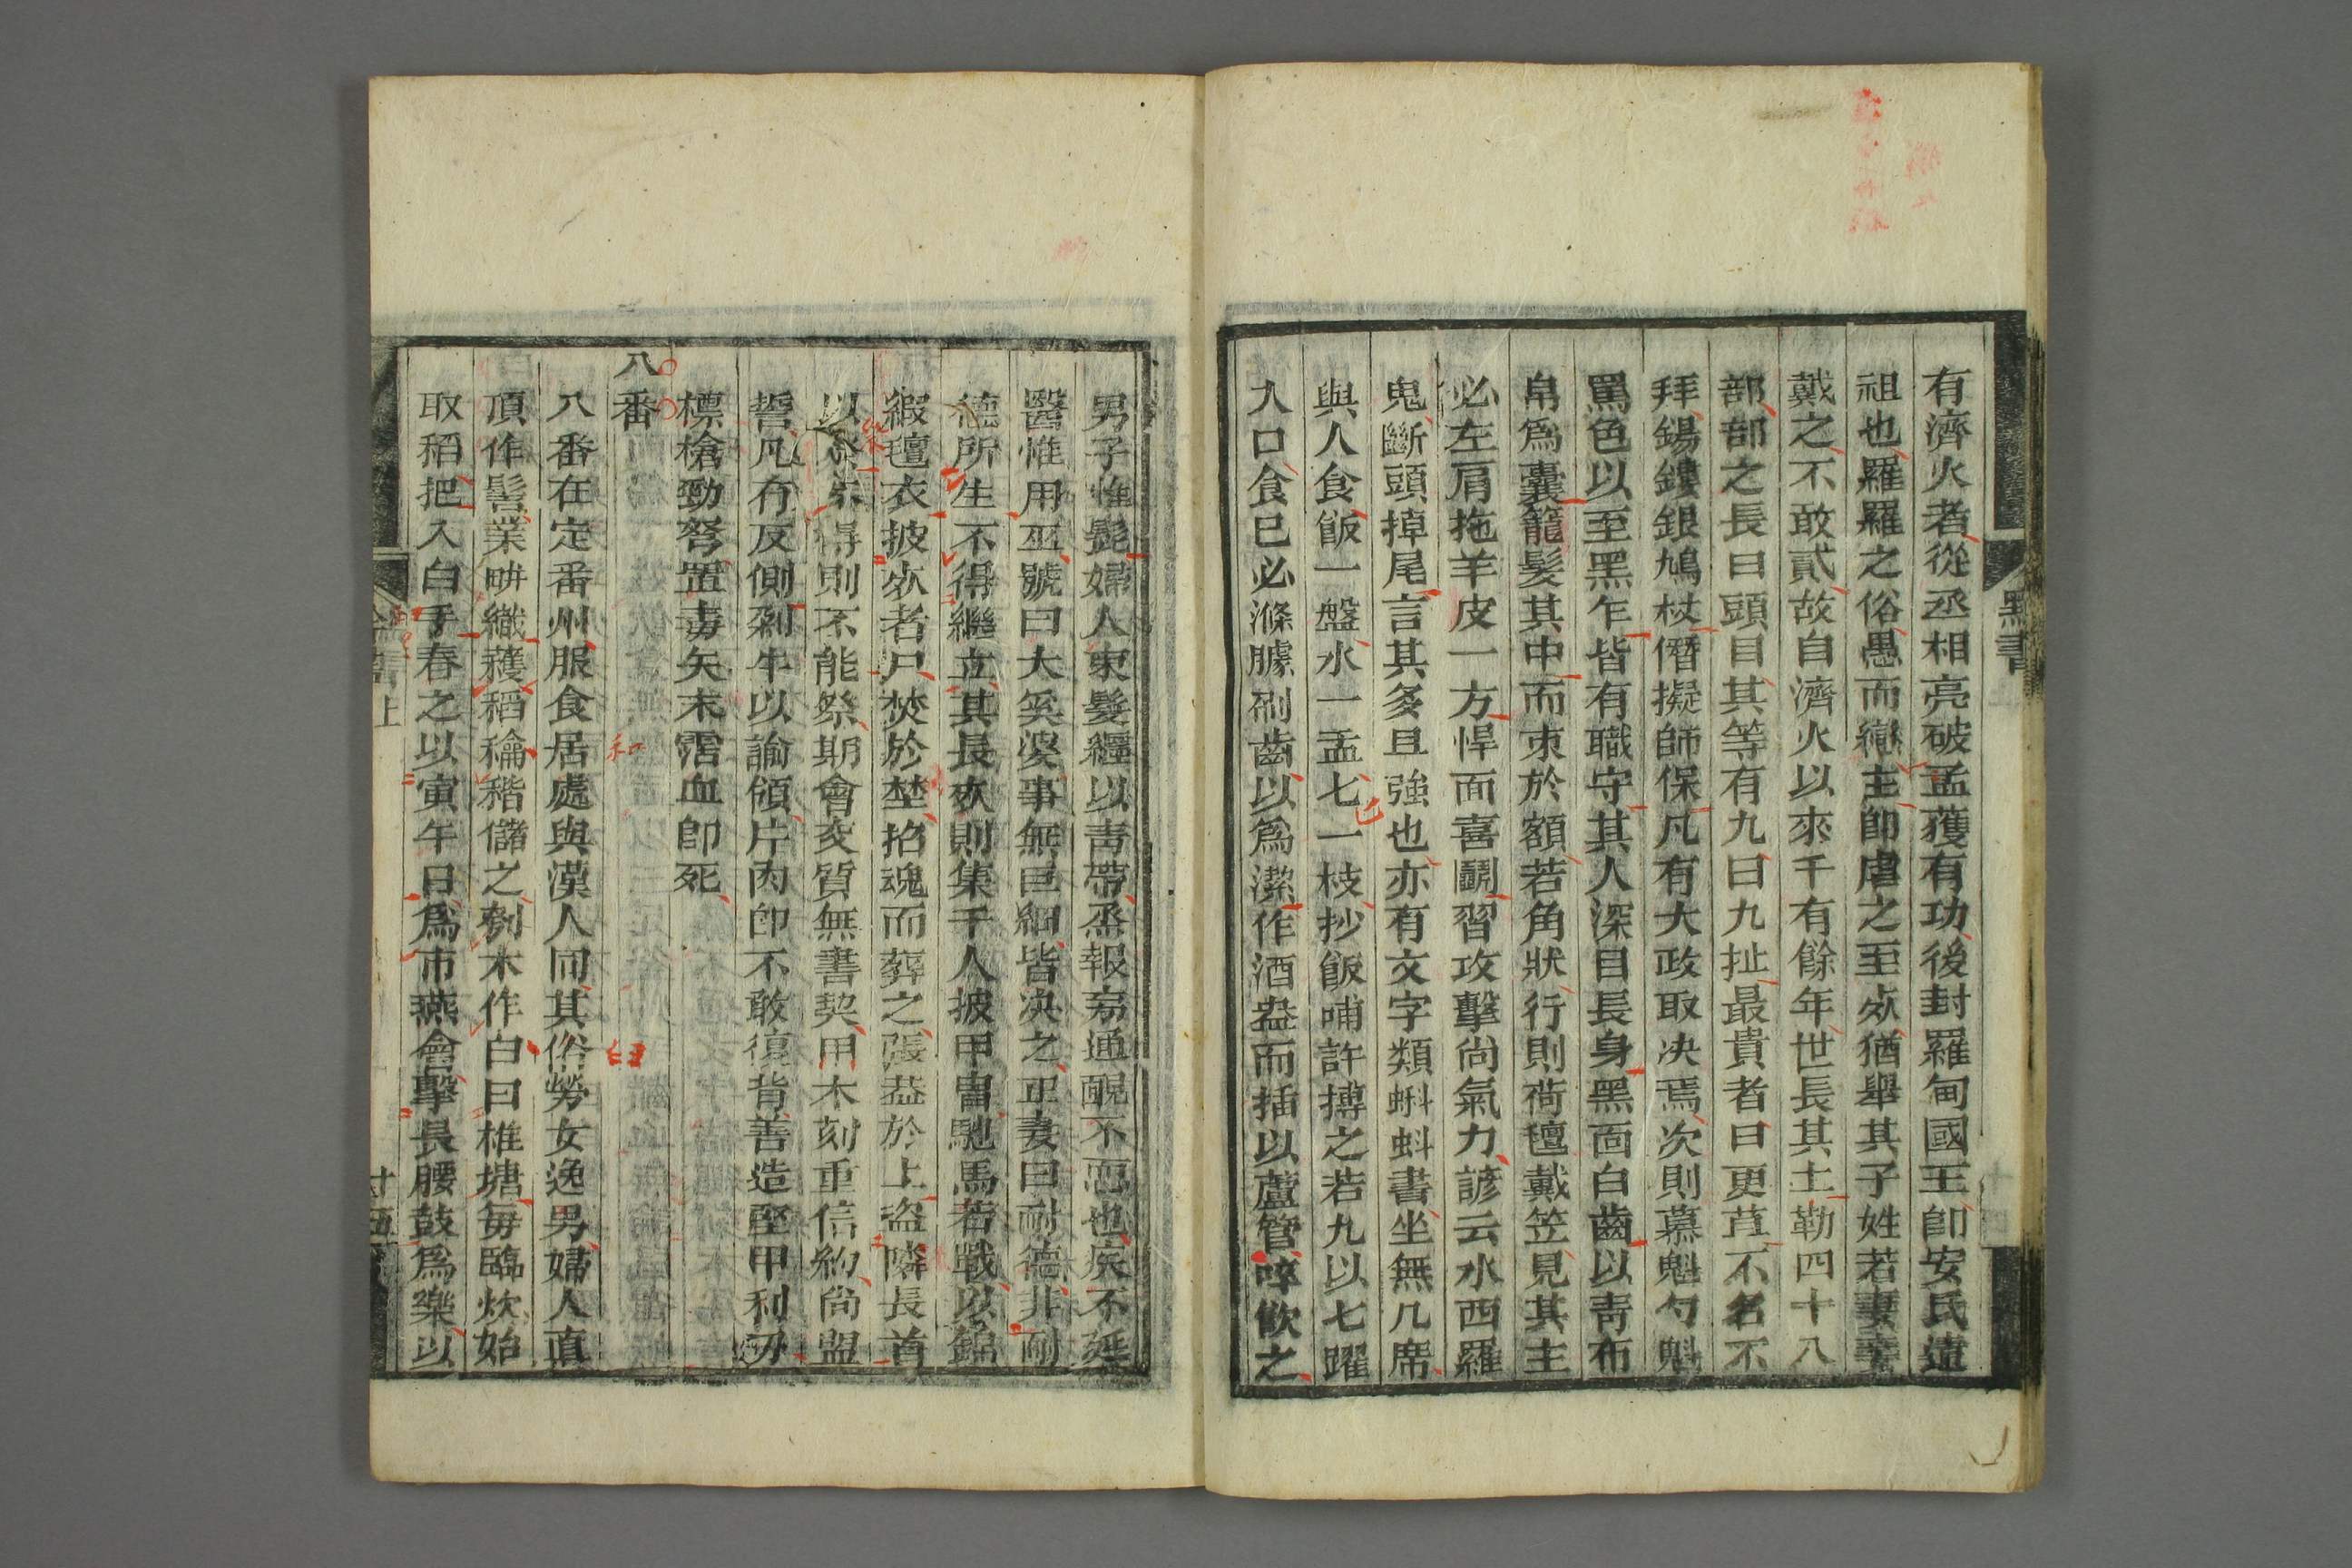 有濟火者從丞相亮破孟獲有功後封羅甸國王卽安氏遠
祖也羅羅之俗愚而戀主卽虐之至死猶舉其子姓若妻妾
戴之不敢貳故自濟火以來千有餘年世長其土勒四十八
部部之長曰頭目其等有九曰九扯最貴者曰更苴不名不
拜鍚鏤銀鳩杖僭擬師保凡有大政取决焉次則慕魁勺魁
罵色以至黑乍皆有職守其人深目長身黑面白齒以靑布
帛爲囊籠髮其中而束於額若角狀行則荷氊戴笠見其主
必左肩拖羊皮一方悍面喜鬭習攻擊尙氣力諺云水西羅
鬼斷頭掉尾言其多且強也亦有文字類蝌蚪書坐無几席
與人食飯一盤水一盂七一枝抄飯哺許摶之若九以七躍
入口食已必滌臄刷齒以爲潔作酒盎而插以蘆管啐飲之
黔書
男子惟髡婦人束髮纒以靑帶烝報旁通靦不恧也疾不延
醫惟用巫號曰大奚婆事無巨細皆决之正妻曰耐德非耐
德所生不得繼立其長死則集千人披甲冑馳馬若戰以錦
緞氊衣披死者尸焚於埜招魂而葬之張葢於上盜隣長首
以祭不得則不能祭期會交質無書契用木刻重信約尙盟
誓凡有反側剁牛以諭領片肉卽不敢復背善造堅甲利刃
標槍勁弩置毒矢末霑血卽死
八番
八番在定番州服食居處與漢人同其俗勞女逸男婦人直
頂作髻業畊織穫稻稐稭儲之刳木作臼曰椎塘每臨炊始
取稻把入臼手舂之以寅午日爲市燕會擊長腰鼓爲樂以
黔書上
十五
和